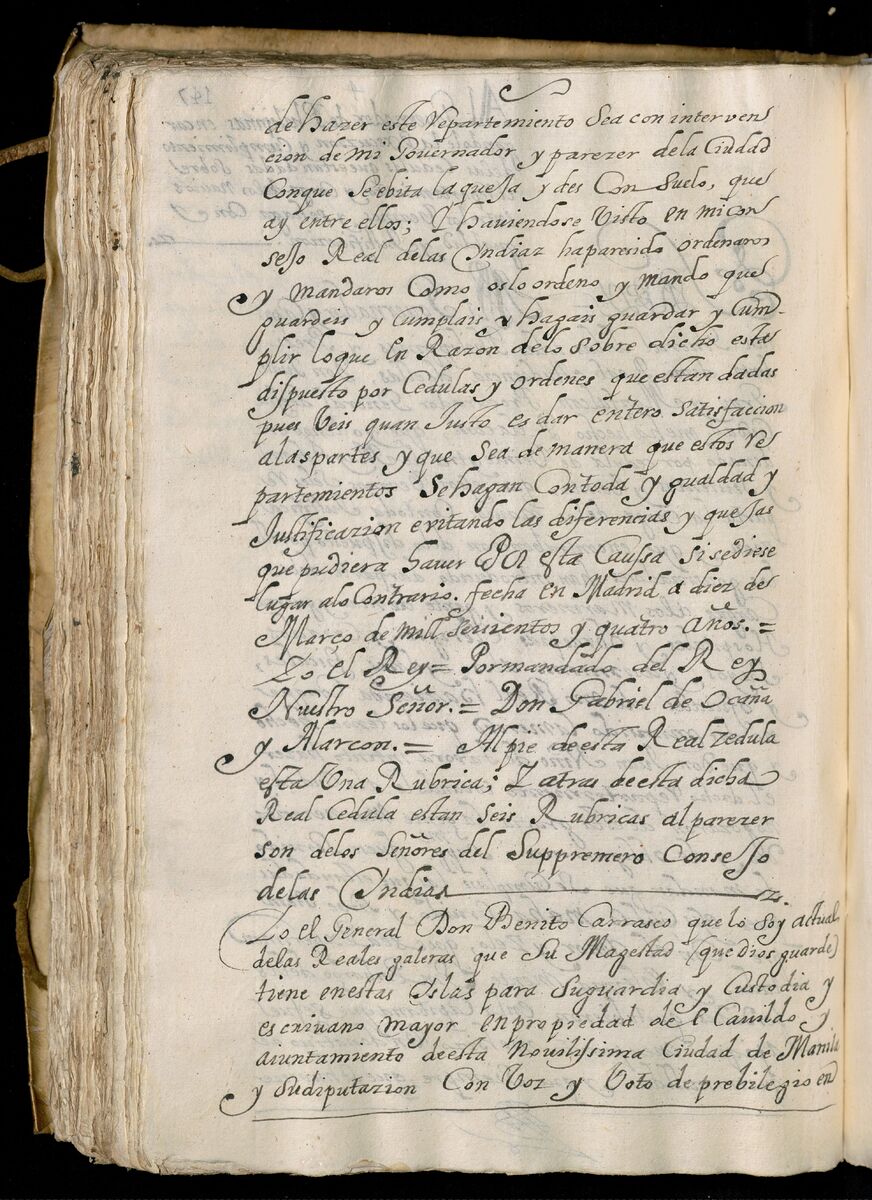 de hazer este repartemiento Sea con interven
cion de mi Governador y parezer dela Ciudad
Conque Se ebita la queja y des Con Suelo, que
ay entre ellos; Y haviendose Visto en mi con
sejo Real delas Yndiaz ha paresido ordenaros
y mandaros Como os lo ordeno y mando que
guardeis y Cumplais y hagais guardar y Cum-
plir lo que en Razon delo Sobre dicho esta
dispuesto por Cedulas y ordenes que estan dadas
pues Veis quan Justo es dar entero Satisfaccion
alas partes y que Sea de manera que estos re
partemientos Se hagan Con toda y gualdad y
Justificazion evitando las diferencias y quejas
que pudiera haver Por esta Caussa Si se diese
lugar alo Contrario. fecha en Madrid a diez de
Março de mill seicientos y quatro años. =
Yo el Rey = Por mandado del Rey
Nuestro Señor. = Don Gabriel de Ocaña
y Alarcon. = Al pie de esta Real zedula
esta Una Rubrica; Y atras de esta dicha
Real Cedula estan Seis Rubricas al parezer
son delos Señores del Suppremero Consejo
delas Yndias
Yo el General Don Benito Carrasco que lo Soy actual
delas Reales galeras que Su Magestad (que Dios guarde)
tiene en estas Yslas para Su guardia y Custodia y
escrivano mayor en propiedad de el Cavildo y
aiuntamiento de esta Novilissima Ciudad de Manila
y Su diputazion Con Voz y Voto de prebilegio en